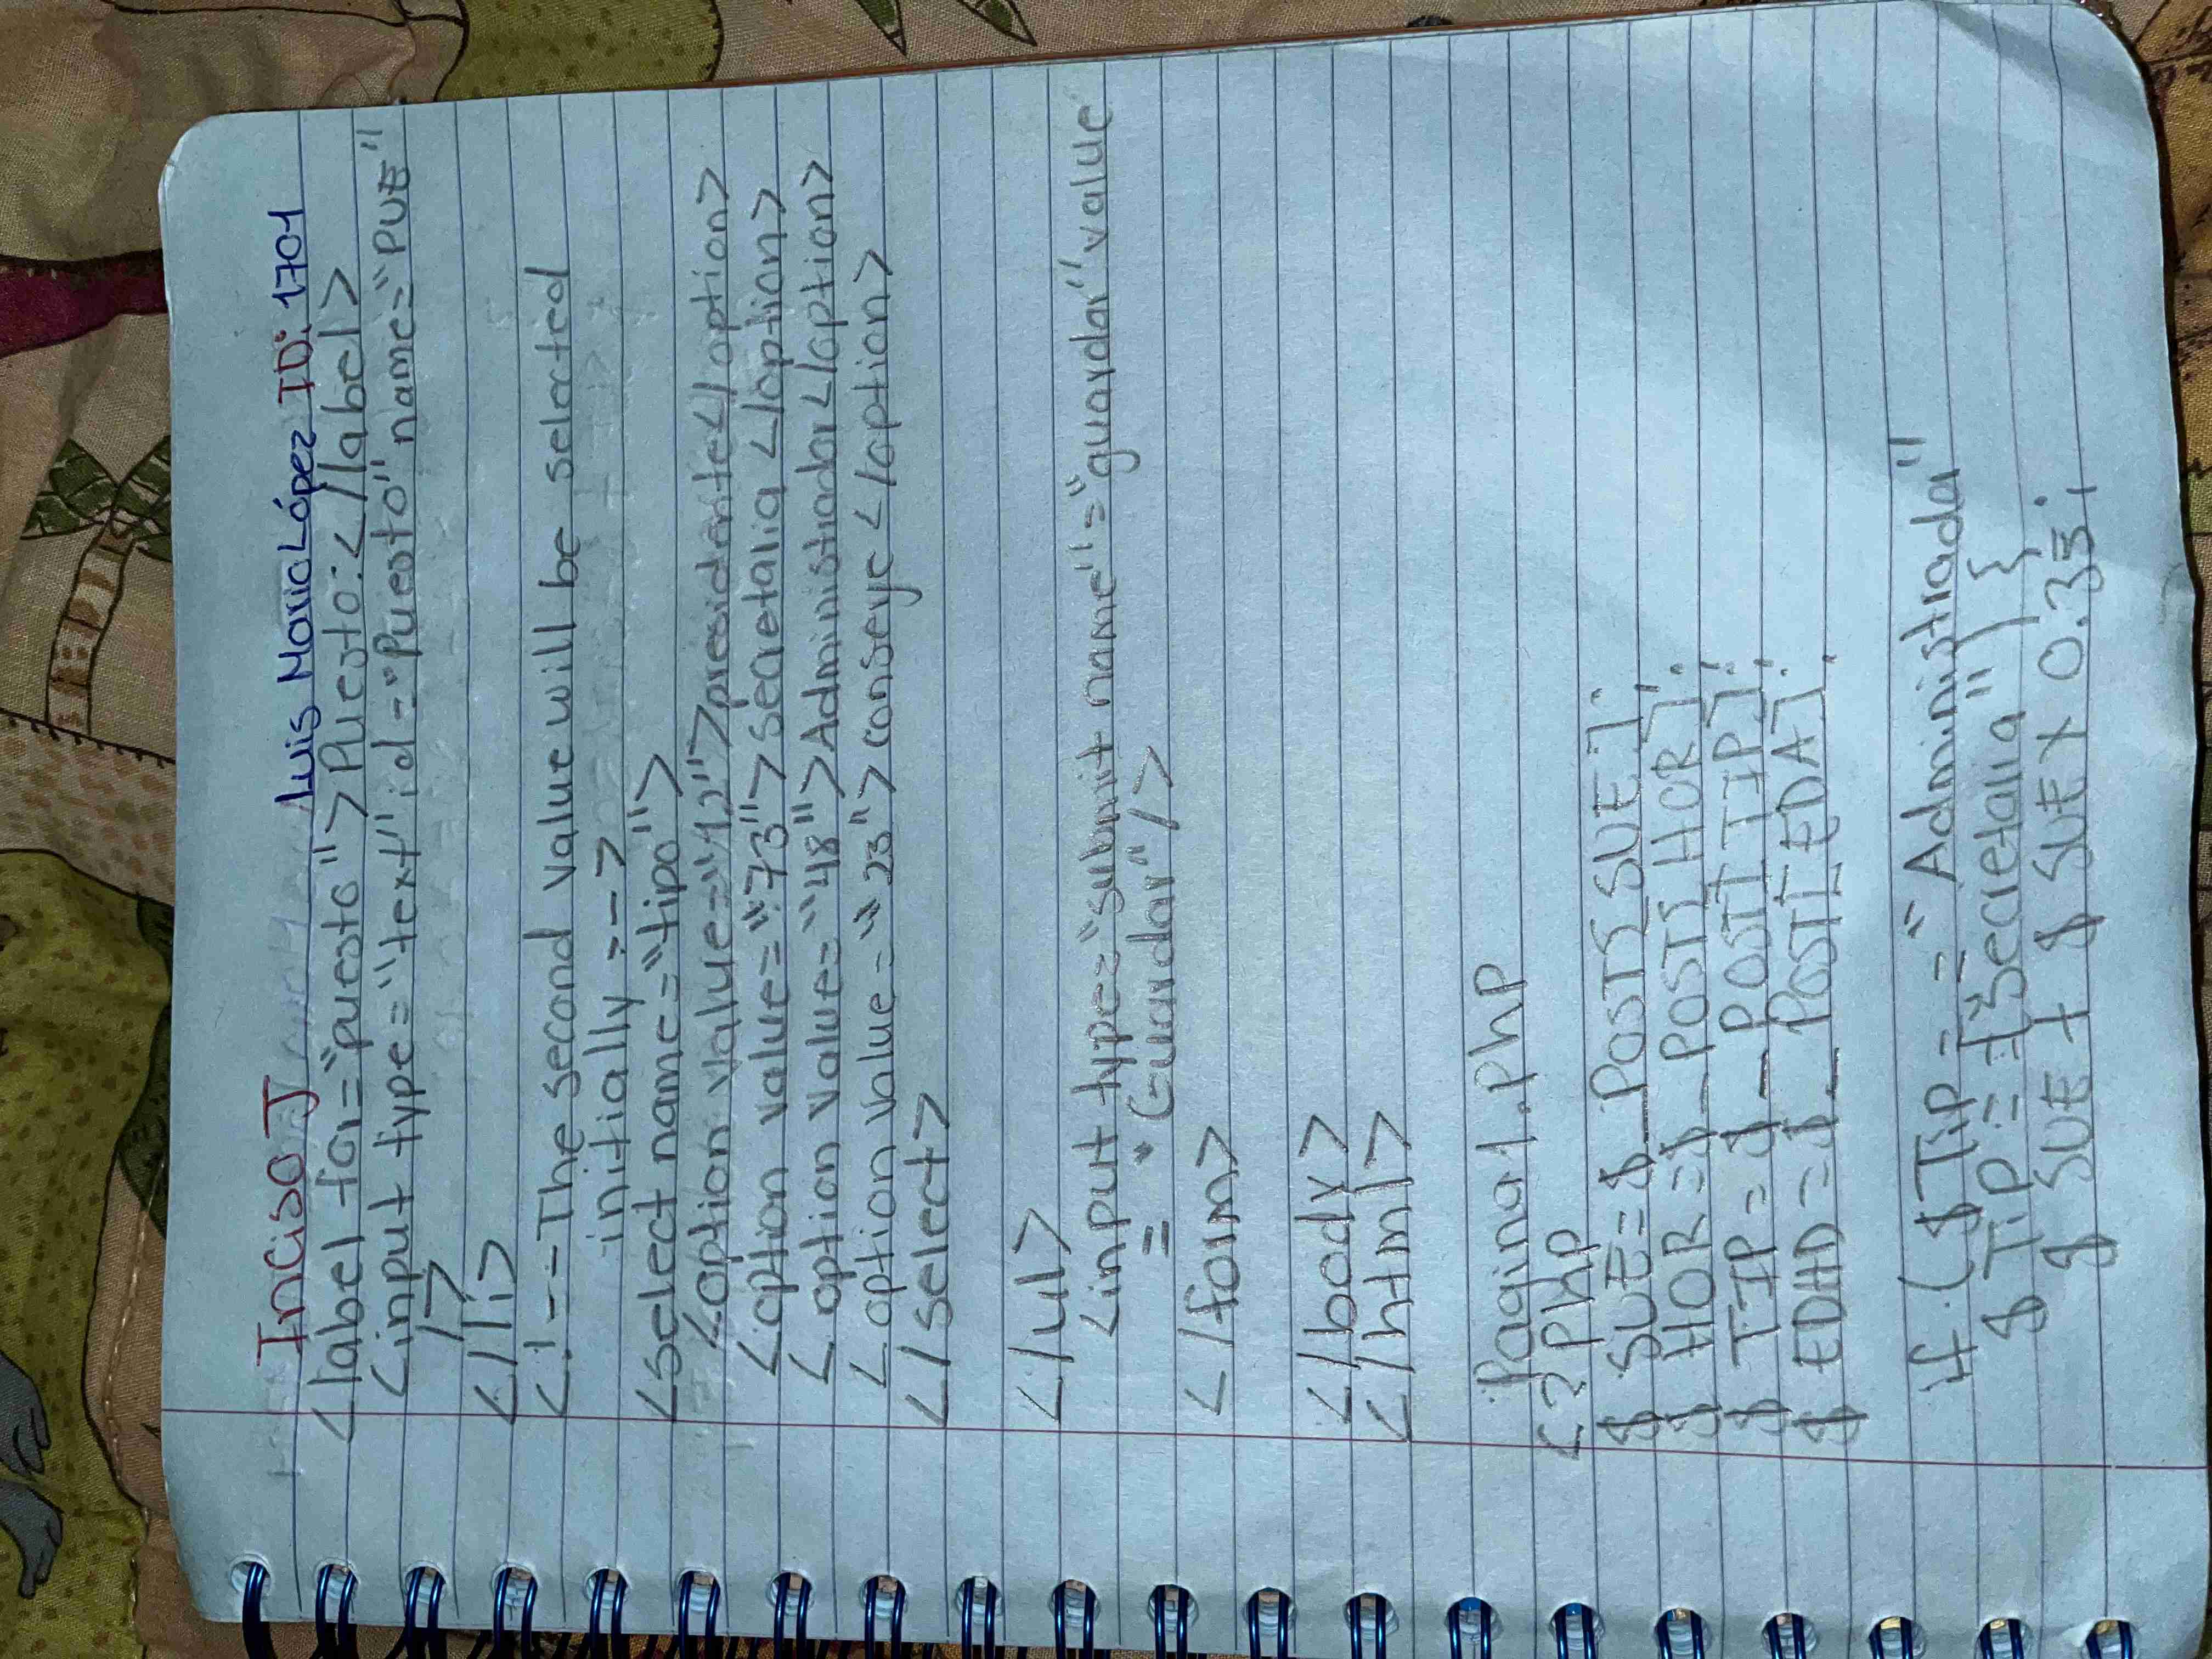 Inciso J Luis Mario López ID: 1701
<label for="puesto">Puesto:</label>
<input type="text" id="Puesto" name="PUE"
/>
</li>
<!--The second value will be selected
initially -->
<select name="tipo">
<option value="12">presidente</option>
<option value="73">secretaria </option>
<option value="48">Administrador</option>
<option value="23">conserje </option>
</select>
</ul>
<input type="submit name"="guardar" value
= "Guardar"/>
</form>
</body>
</html>
Pagina1.php
<?php
$ SUE=$_POST[SUE];
$ HOR=$_POST[HOR];
$ TIP=$_POST[TIP];
$ EDAD=$_POST[EDA];
if ($TiP == "Administrada"
$ TiP = "Secretaria") {
$ SUE + $ SUE * 0.35;